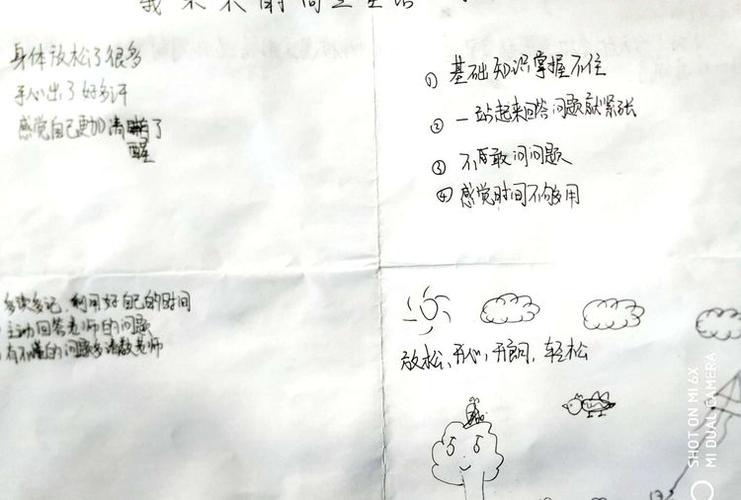 身体放松了很多
手心出了好多汗
感觉自己更加清醒了
① 基础知识掌握不住
② 一站起来回答问题就紧张
③ 不敢问问题
④ 感觉时间不够用
多读多记，利用好自己的时间
主动回答老师的问题
有不懂的问题多请教老师
放松、开心，开朗，轻松
SHOT ON MI 6X
MI DUAL CAMERA